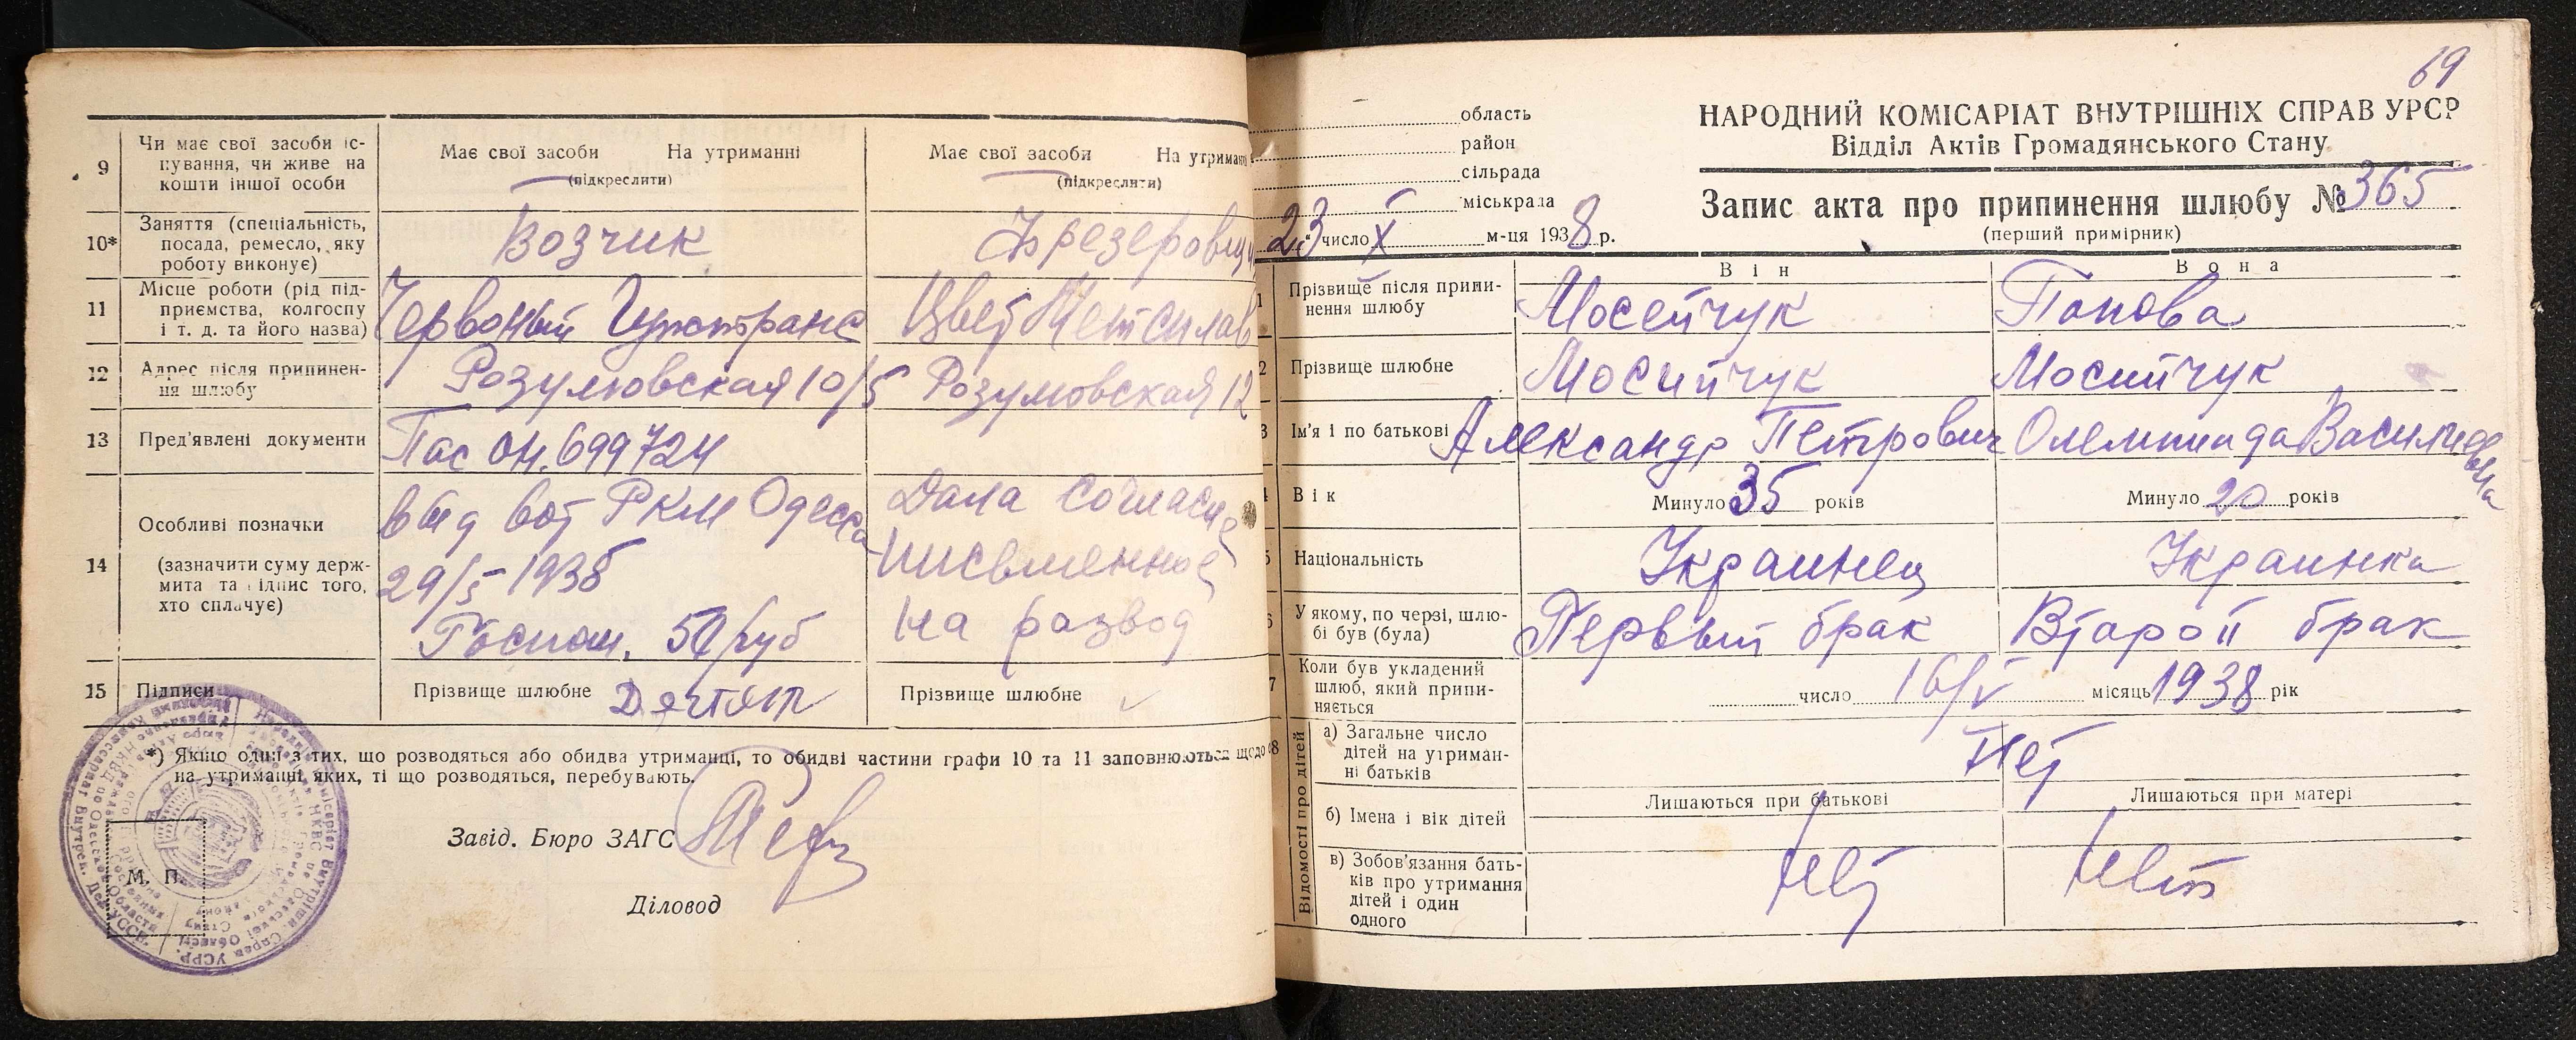 9
Чи має свої засоби іс-
нування, чи живе на
кошти іншої особи
Має свої засоби На утриманні
(підкреслити)
Має свої засоби На утриманні
(підкреслити)
10*
Заняття (спеціальність,
посада, ремесло, яку
роботу виконує)
Возчик
Фрезеровщи
11
Місце роботи (рід під-
приємства, колгоспу
і т. д. та його назва)
Червоный
Цвет
12
Адрес після припинен-
ня шлюбу
Розумовская 10/5
Розумовская 12
13
Пред'явлені документи
Пас ОН. 699724
14
Особливі позначки
(зазначити суму держ-
мита та підпис того,
хто сплачує)
выд РКМ Одесса
29/5 1938
Госпош. 50 руб
Дала согласие
письменное
на развод
15
Підписи
Прізвище шлюбне
Прізвище шлюбне
*) Якщо одні з тих, що розводяться або обидва утриманці, то обидві частини графи 10 та 11 заповнюються щодо
на утриманні яких, ті що розводяться, перебувають.
Завід. Бюро ЗАГС
Діловод
М. П.
69
область
район
сільрада
міськрада
23 число X м-ця 1938 р.
НАРОДНИЙ КОМІСАРІАТ ВНУТРІШНІХ СПРАВ УРСР
Відділ Актів Громадянського Стану
Запис акта про припинення шлюбу № 365
(перший примірник)
Він
Вона
1
Прізвище після припи-
нення шлюбу
Мосейчук
Попова
2
Прізвище шлюбне
Мосийчук
Мосийчук
3
Ім'я і по батькові
Александр Петрович
Олемпиада Василиевна
4
Вік
Минуло 35 років
Минуло 20 років
5
Національність
Украинец
Украинка
6
У якому, по черзі, шлю-
бі був (була)
Первый брак
Второй брак
7
Коли був укладений
шлюб, який припи-
няється
число 16/V місяць 1938 рік
8
Відомості про дітей
а) Загальне число
дітей на утриман-
ні батьків
Нет
б) Імена і вік дітей
Лишаються при батькові
Лишаються при матері
в) Зобов'язання бать-
ків про утримання
дітей і один
одного
Нет
Нет